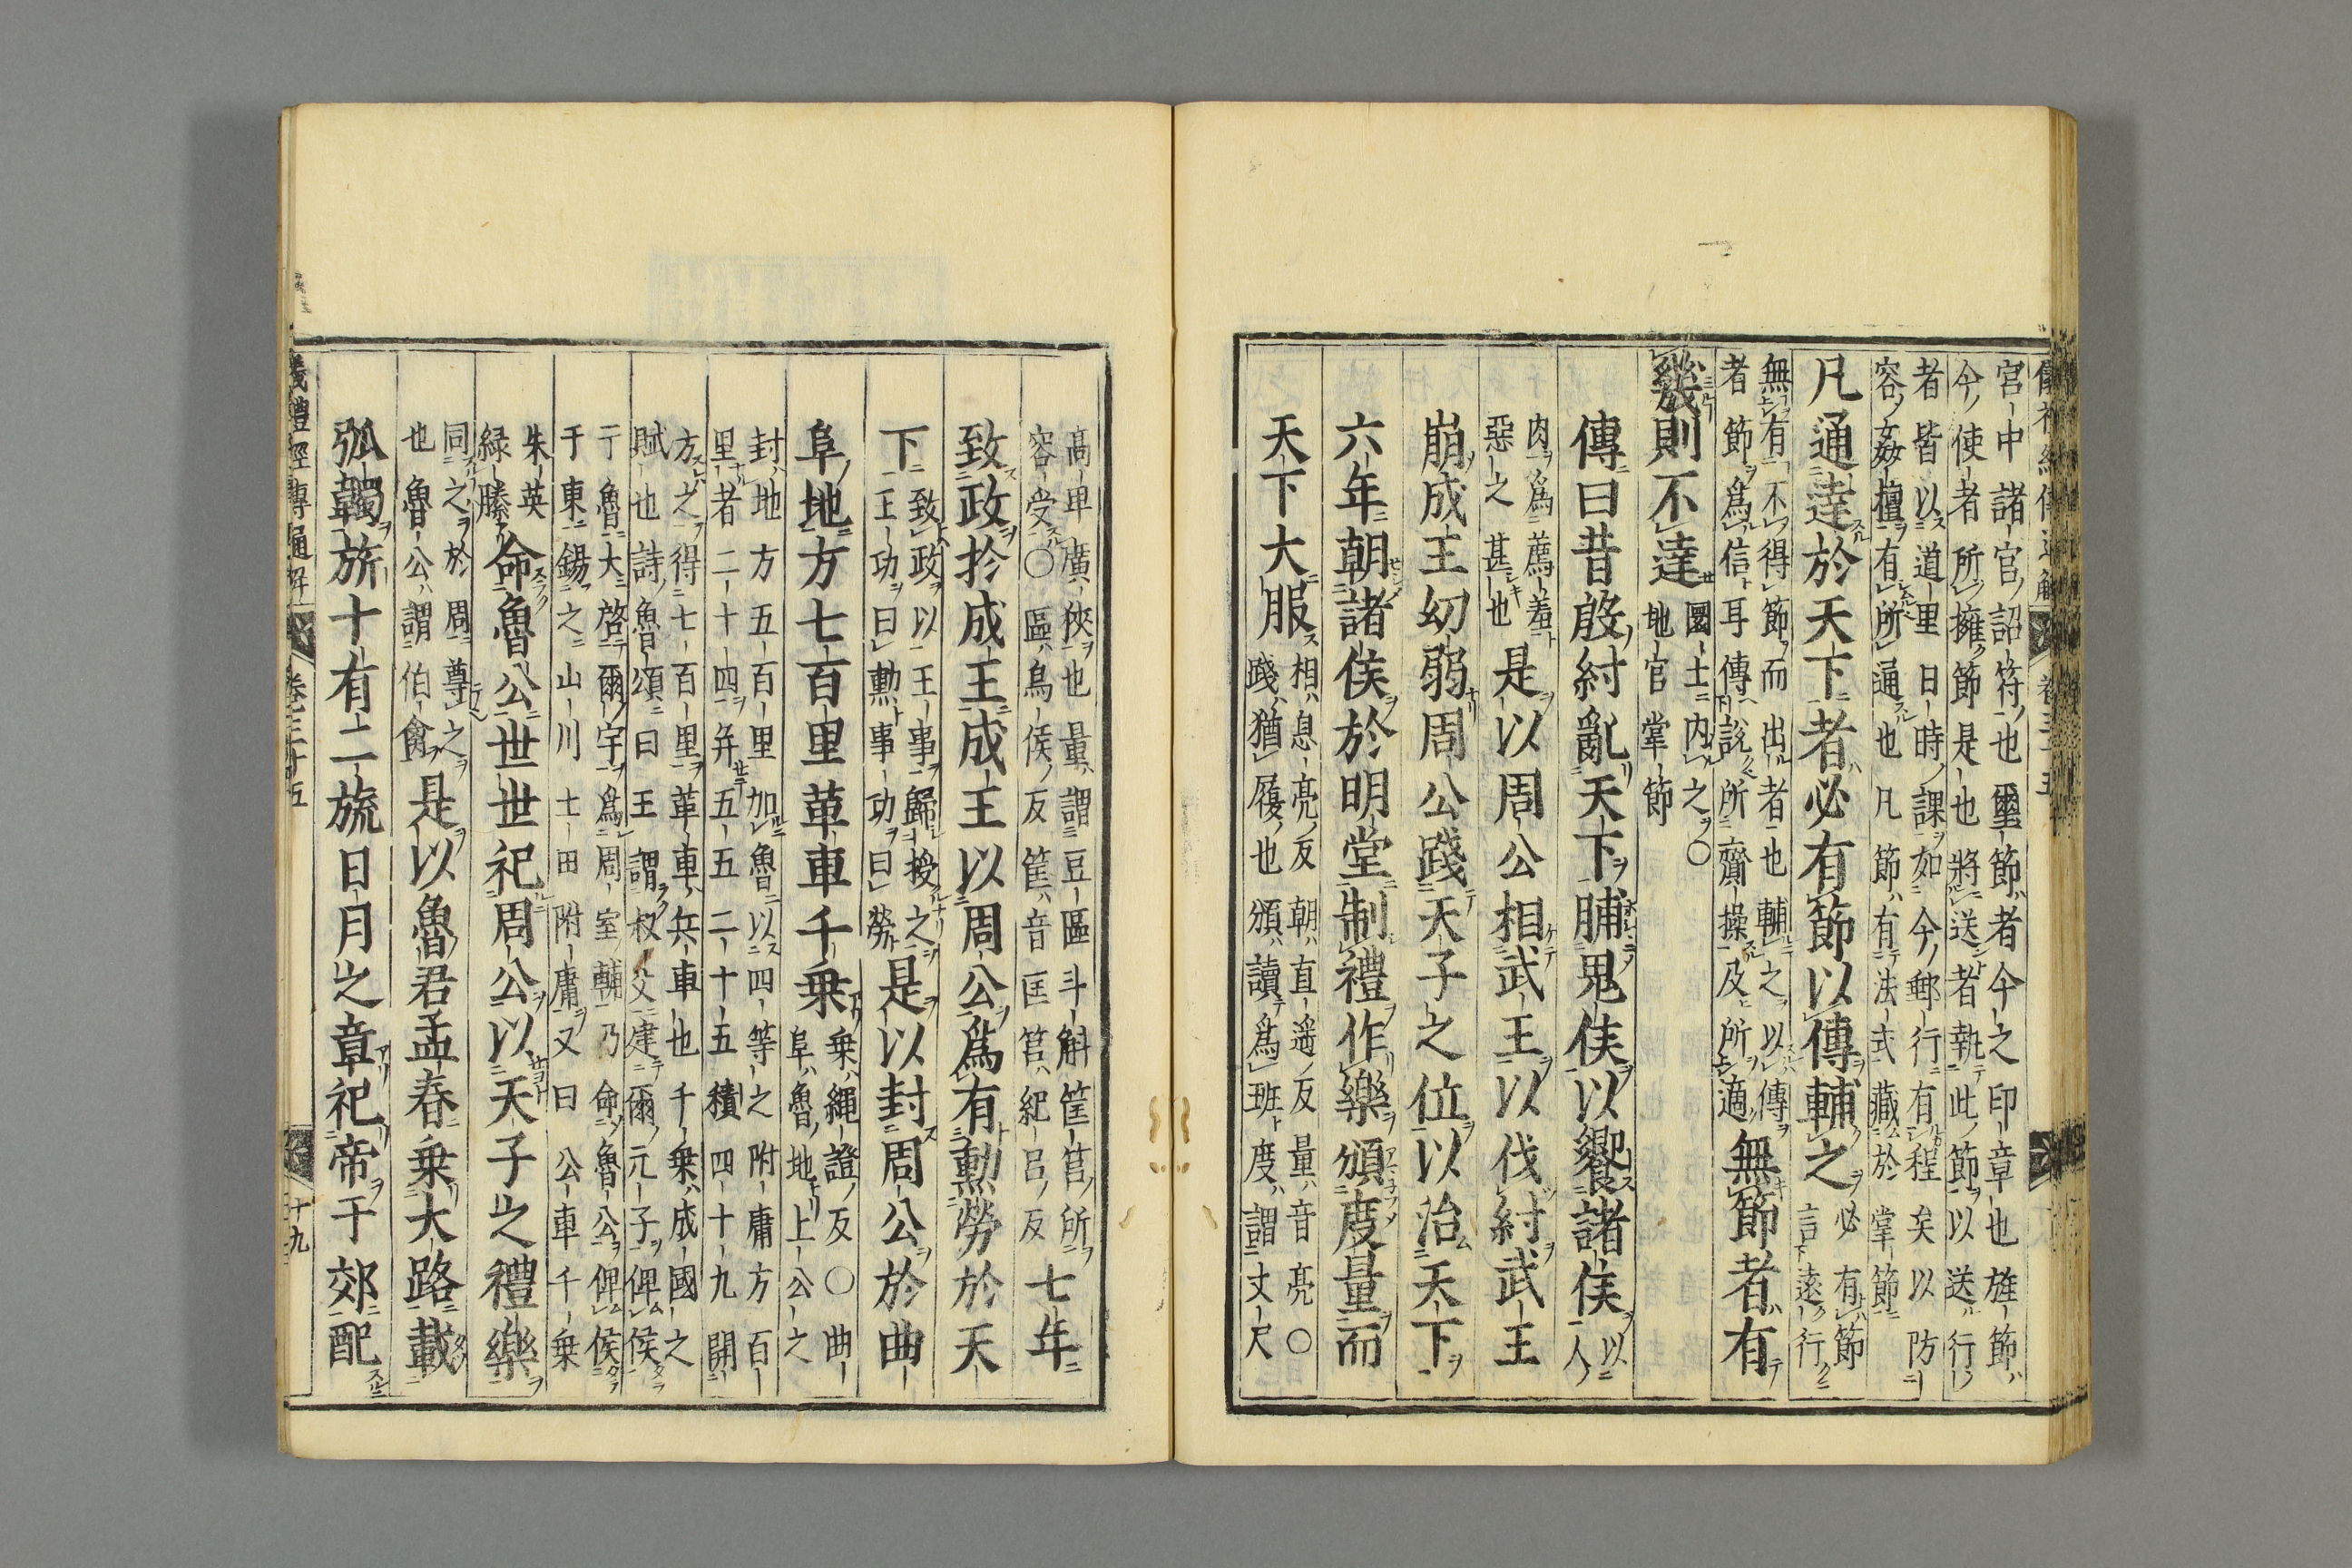 宮中諸官詔符也璽節者今之印章也旌節
今使者所擁節是也將送者執此節以送行
者皆以道里日時課如今郵行有程矣以防
容姦擅有所通也凡節有法式藏於掌節
凡通達於天下者必有節以傳輔之
必有節
言遠行
無有不得節而出者也輔之以傳
者節爲信耳傳說所齎操及所適
無節者有
幾則不達
圜土内之○
地官掌節
傳曰昔殷紂亂天下脯鬼侯以饗諸侯
以人
肉爲薦羞
惡之甚也
是以周公相武王以伐紂武王
崩成王幼弱周公踐天子之位以治天下
六年朝諸侯於明堂制禮作樂頒度量而
天下大服
相息亮反朝直遥反量音亮○
踐猶履也頒讀爲班度謂丈尺
高卑廣狹也量謂豆區斗斛筐筥所
容受○區烏侯反筐音匡筥紀呂反
七年
致政於成王成王以周公爲有勳勞於天
下
致政以王事歸授之
王功曰勳事功曰勞
是以封周公於曲
阜地方七百里革車千乗
乗繩證反○曲
阜魯地上公之
封地方五百里加魯以四等之附庸方百
里者二十四并五五二十五積四十九開
方之得七百里革車兵車也千乗成國之
賦也詩魯頌曰王謂叔父建爾元子俾侯
于魯大啓爾宇爲周室輔乃命魯公俾侯
于東錫之山川土田附庸又曰公車千乗
朱英
緑縢
命魯公世世祀周公以天子之禮樂
同之於周尊之
也魯公謂伯禽
是以魯君孟春乗大路載
弧韣旂十有二旒日月之章祀帝于郊配
儀禮經傳通解 卷三十五 十九